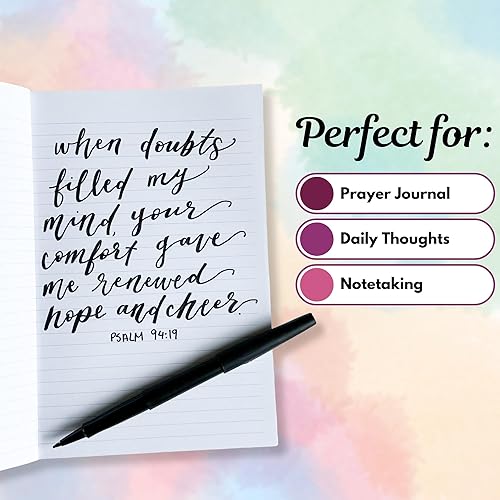 when doubts
filled my
mind, your
comfort gave
me renewed
hope and cheer.
PSALM 94:19
Perfect for:
Prayer Journal
Daily Thoughts
Notetaking